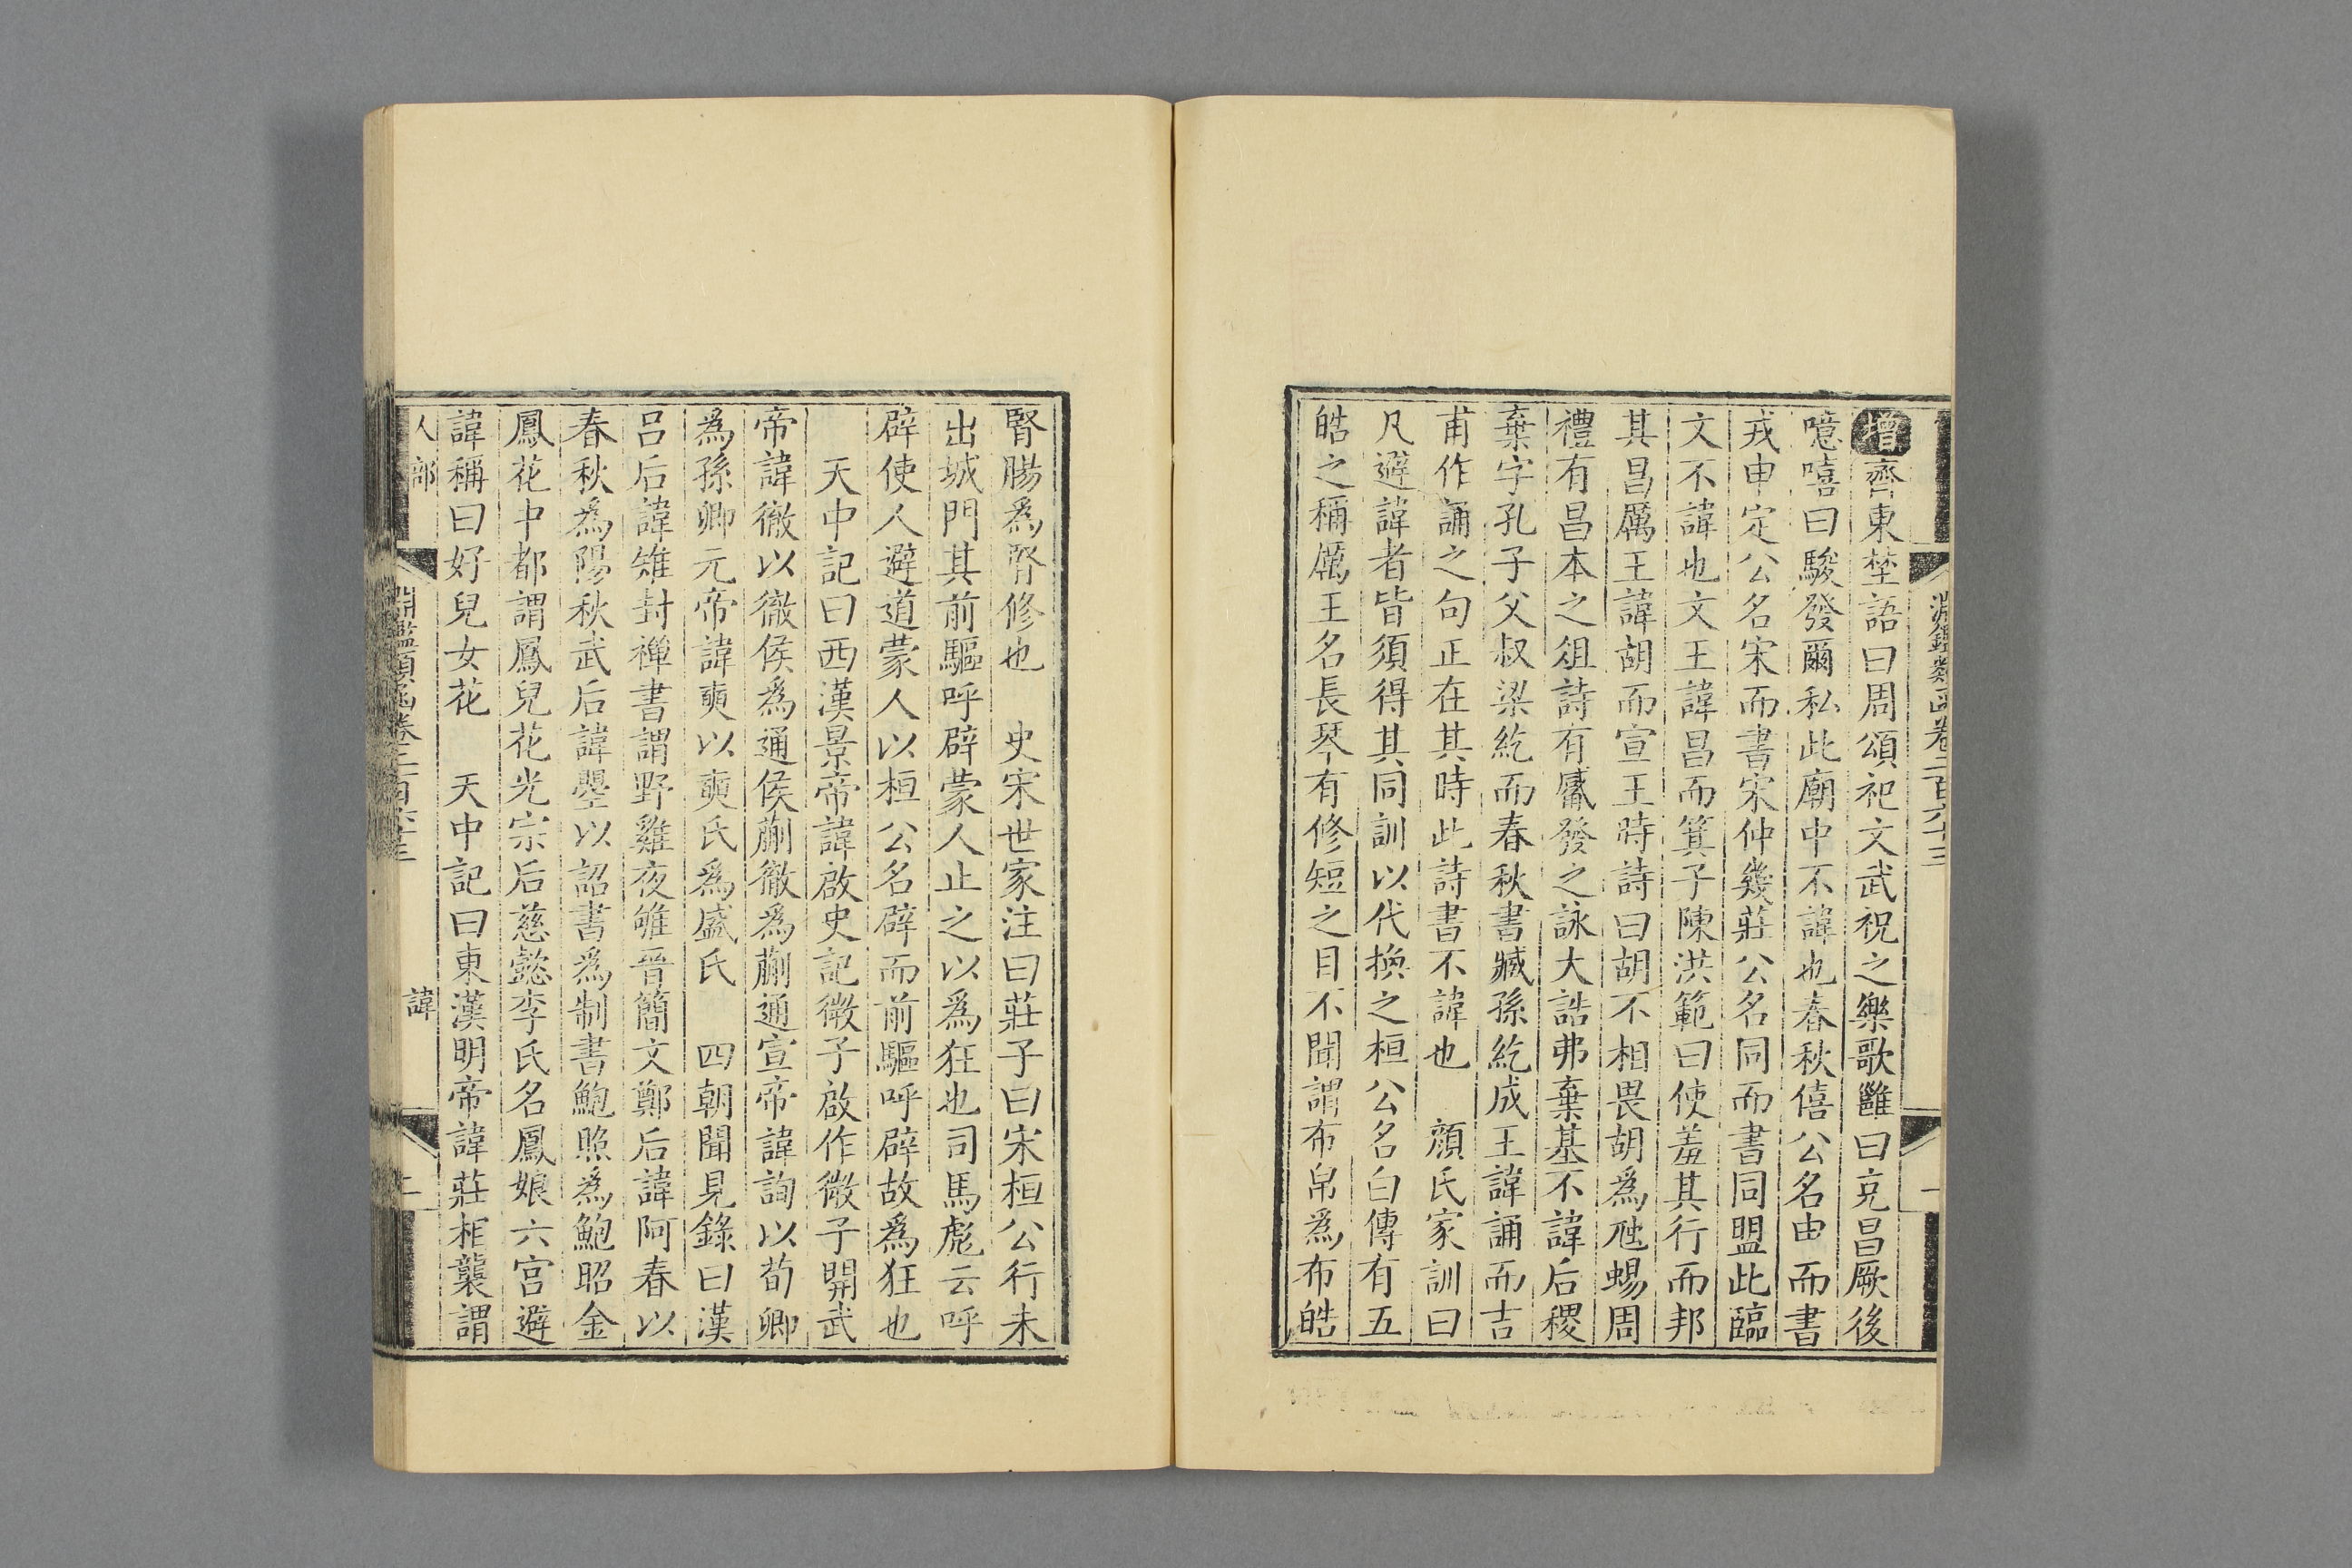 淵鑑類函卷二百六十三
增齊東埜語曰周頌祀文武祝之樂歌雝曰克昌厥後
噫嘻曰駿發爾私此廟中不諱也春秋僖公名申而書
戎申定公名宋而書宋仲幾莊公名同而書同盟此臨
文不諱也文王諱昌而箕子陳洪範曰使羞其行而邦
其昌厲王諱胡而宣王時詩曰胡不相畏胡為虺蜴周
禮有昌本之俎詩有觱發之詠大誥弗棄基不諱后稷
棄字孔子父叔梁紇而春秋書臧孫紇成王諱誦而吉
甫作誦之句正在其時此詩書不諱也　顔氏家訓曰
凡避諱者皆須得其同訓以代換之桓公名白傳有五
皓之稱厲王名長琴有修短之目不聞謂布帛為布皓
腎腸為腎修也　史宋世家注曰莊子曰宋桓公行未
出城門其前驅呼辟蒙人止之以為狂也司馬彪云呼
辟使人避道蒙人以桓公名辟而前驅呼辟故為狂也
天中記曰西漢景帝諱啟史記微子啟作微子開武
帝諱徹以徹侯為通侯蒯徹為蒯通宣帝諱詢以荀卿
為孫卿元帝諱奭以奭氏為盛氏　四朝聞見錄曰漢
呂后諱雉封禪書謂野雞夜雊晉簡文鄭后諱阿春以
春秋為陽秋武后諱曌以詔書為制書鮑照為鮑昭金
鳳花中都謂鳳兒花光宗后慈懿李氏名鳳娘六宮避
諱稱曰好兒女花　天中記曰東漢明帝諱莊相襲謂
人部　淵鑑類函卷二百六十三　諱　二